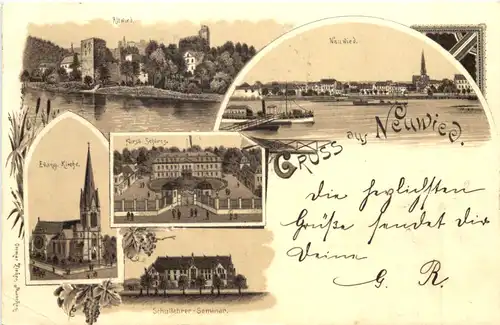 Altwied.
Neuwied.
Gruss aus Neuwied.
Fürstl. Schloss.
Evang. Kirche.
Schullehrer-Seminar.
Die herzlichsten
Grüße sendet Dir
Deine
G. R.